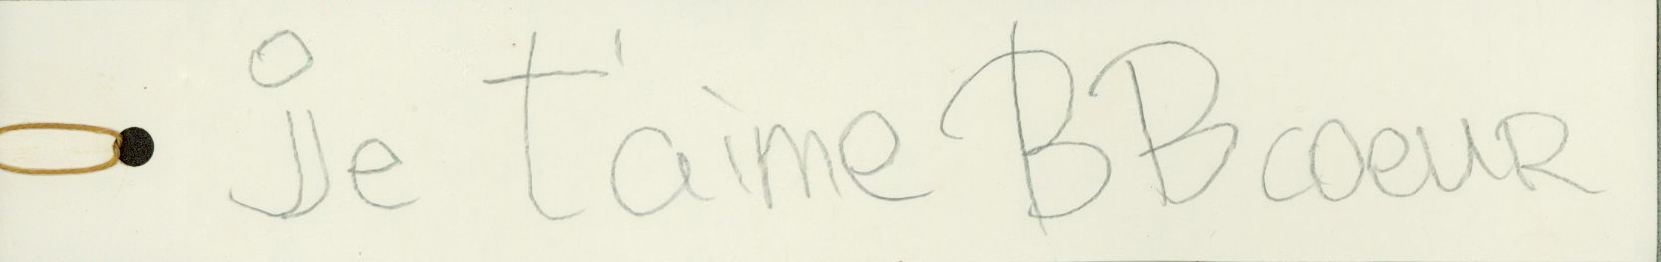 je t'aime BB coeur